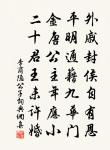 外戚封侯自有恩
平明通籍九華門
金唐公主年應小
二十君王未許婚
李商隱公子詩典調集